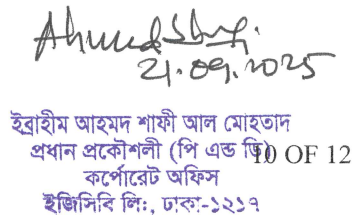 21.09.2025
ইব্রাহীম আহমদ শাফী আল মোহতাদ
প্রধান প্রকৌশলী (পি এন্ড ডি) 10 OF 12
কর্পোরেট অফিস
ইজিসিবি লি:, ঢাকা-১২১৭